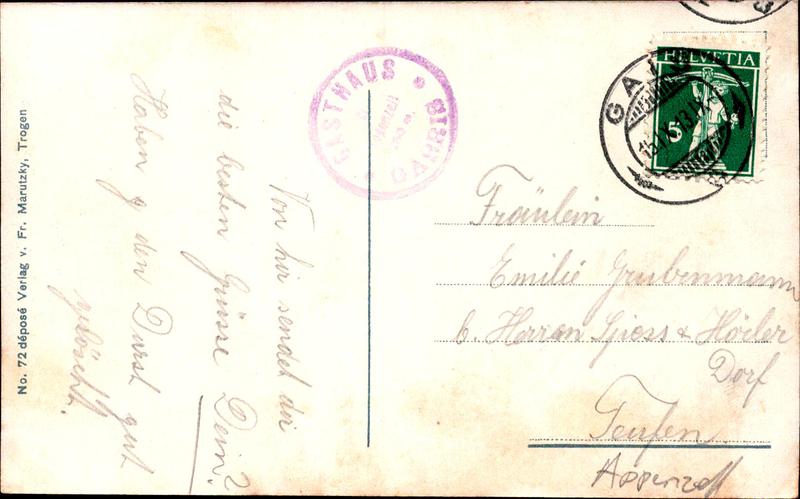 No. 72 déposé Verlag v. Fr. Marutzky, Trogen
Von hir sendet dir
die besten Grüsse Dein?
Haben g den Durst gut
gelöscht.
GASTHAUS
GÄBRIS
HELVETIA
5
GAIS
Fräulein
Emilie Grubenmann
b. Herren Giess & Höcler
Dorf
Teufen
Appenzell